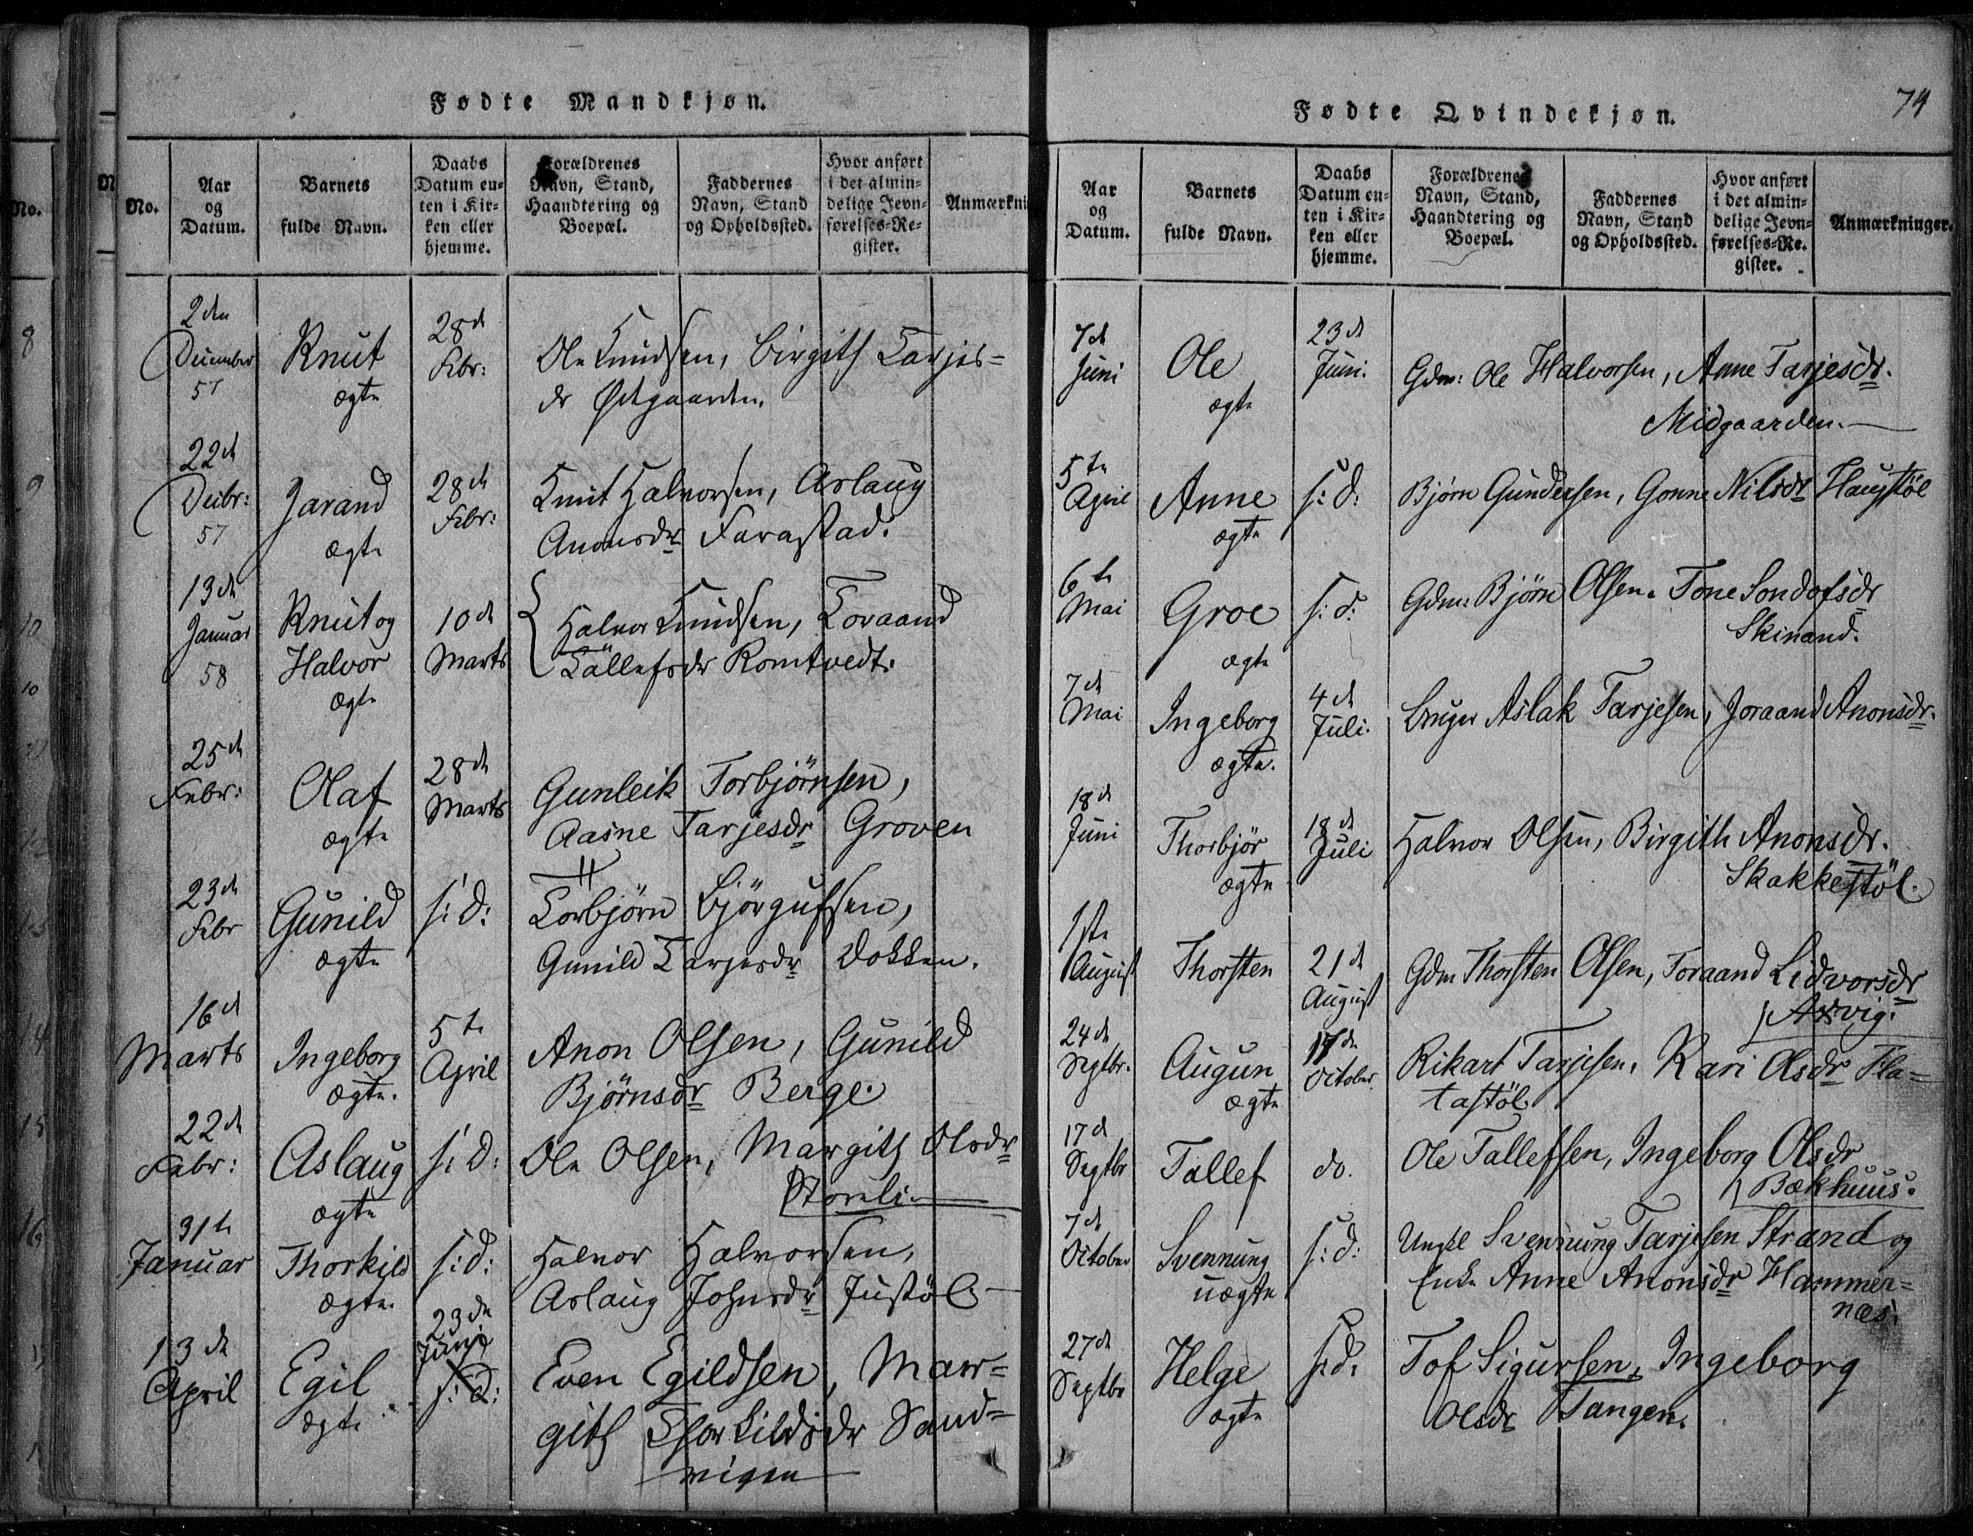 Fødte Mandkjøn.
No.
Aar og Datum.
Barnets fulde Navn.
Daabs Datum en- ten i Kir- ken eller hjemme.
Forældrenes Navn, Stand, Haandtering og Boepæl.
Faddernes Navn, Stand og Opholdssted.
Hvor anført i det almin- delige Jevn- førelses-Re- gister.
Anmærkni
2den December 57
Knut ægte
28d Febr:
Ole Knudsen, Birgith Tarjes-
dr Østgaarden.
22d Decbr: 57
Jarand ægte
28d Febr:
Knut Halvorsen, Aslaug
Anonsdr Farastad.
13de Januar 58
Knut og Halvor ægte
10de Marts
Halvor Knudsen, Toraand
Tallefsdr Romtvedt.
25d Febr:
Olaf ægte
28de Marts
Gunleik Torbjørnsen,
Aasne Tarjesdr Groven
23de Febr
Gunild ægte
s: d:
Torbjørn Bjørgufsen,
Gunild Tarjesdr Dokken.
16d Marts
Ingeborg ægte.
5te April
Anon Olsen, Gunild
Bjørnsdr Berge.
22d Febr:
Aslaug ægte
s: d:
Ole Olsen, Margith Olsdr
Storeli.
31te Januar
Thorkild ægte.
s: d:
Halvor Halvorsen,
Aslaug Johnsdr Justøl
13de April
Egil ægte
23de Juni
s: d:
Even Egildsen, Mar-
gith Thorkildsdr Sand-
vigen
Fødte Qvindekjøn.
74
Aar og Datum.
Barnets fulde Navn.
Daabs Datum en- ten i Kir- ken eller hjemme.
Forældrenes Navn, Stand, Haandtering og Boepæl.
Faddernes Navn, Stand og Opholdssted.
Hvor anført i det almin- delige Jevn- førelses-Re- gister.
Anmærkninger.
7d Juni
Ole ægte
23d Juni.
Gdm: Ole Halvorsen, Anne Tarjesdr.
Midgaarden.
5te April
Anne ægte
s: d:
Bjørn Gundersen, Gonne Nilsdr Haugstøl
6te Mai
Groe ægte
s: d:
Gdm: Bjørn Olsen. Tone Sondofsdr
Skinand.
7d Mai
Ingeborg ægte.
4d Juli.
Bruger Aslak Tarjesen, Joraand Anonsdr.
18d Juni
Thorbjør ægte
18d Juli
Halvor Olsen, Birgith Anonsdr.
Skakkestøl.
1ste August
Thorsten
21d August
Gdm Thorsten Olsen, Toraand Lidvorsdr
Axvig.
24de Septbr.
Augun ægte
17de October
Rikart Tarjesen, Kari Olsdr Fla-
tastøl
17d Septbr
Tallef
do.
Ole Tallefsen, Ingeborg Olsdr
Bækhuus.
7d October
Svennung uægte
s: d:
Ungkl Svennung Tarjesen Strand og
Enke Anne Anonsdr Hammer-
næs.
27de Septbr
Helge ægte
s: d:
Tof Sigursen, Ingeborg
Olsdr Tangen.